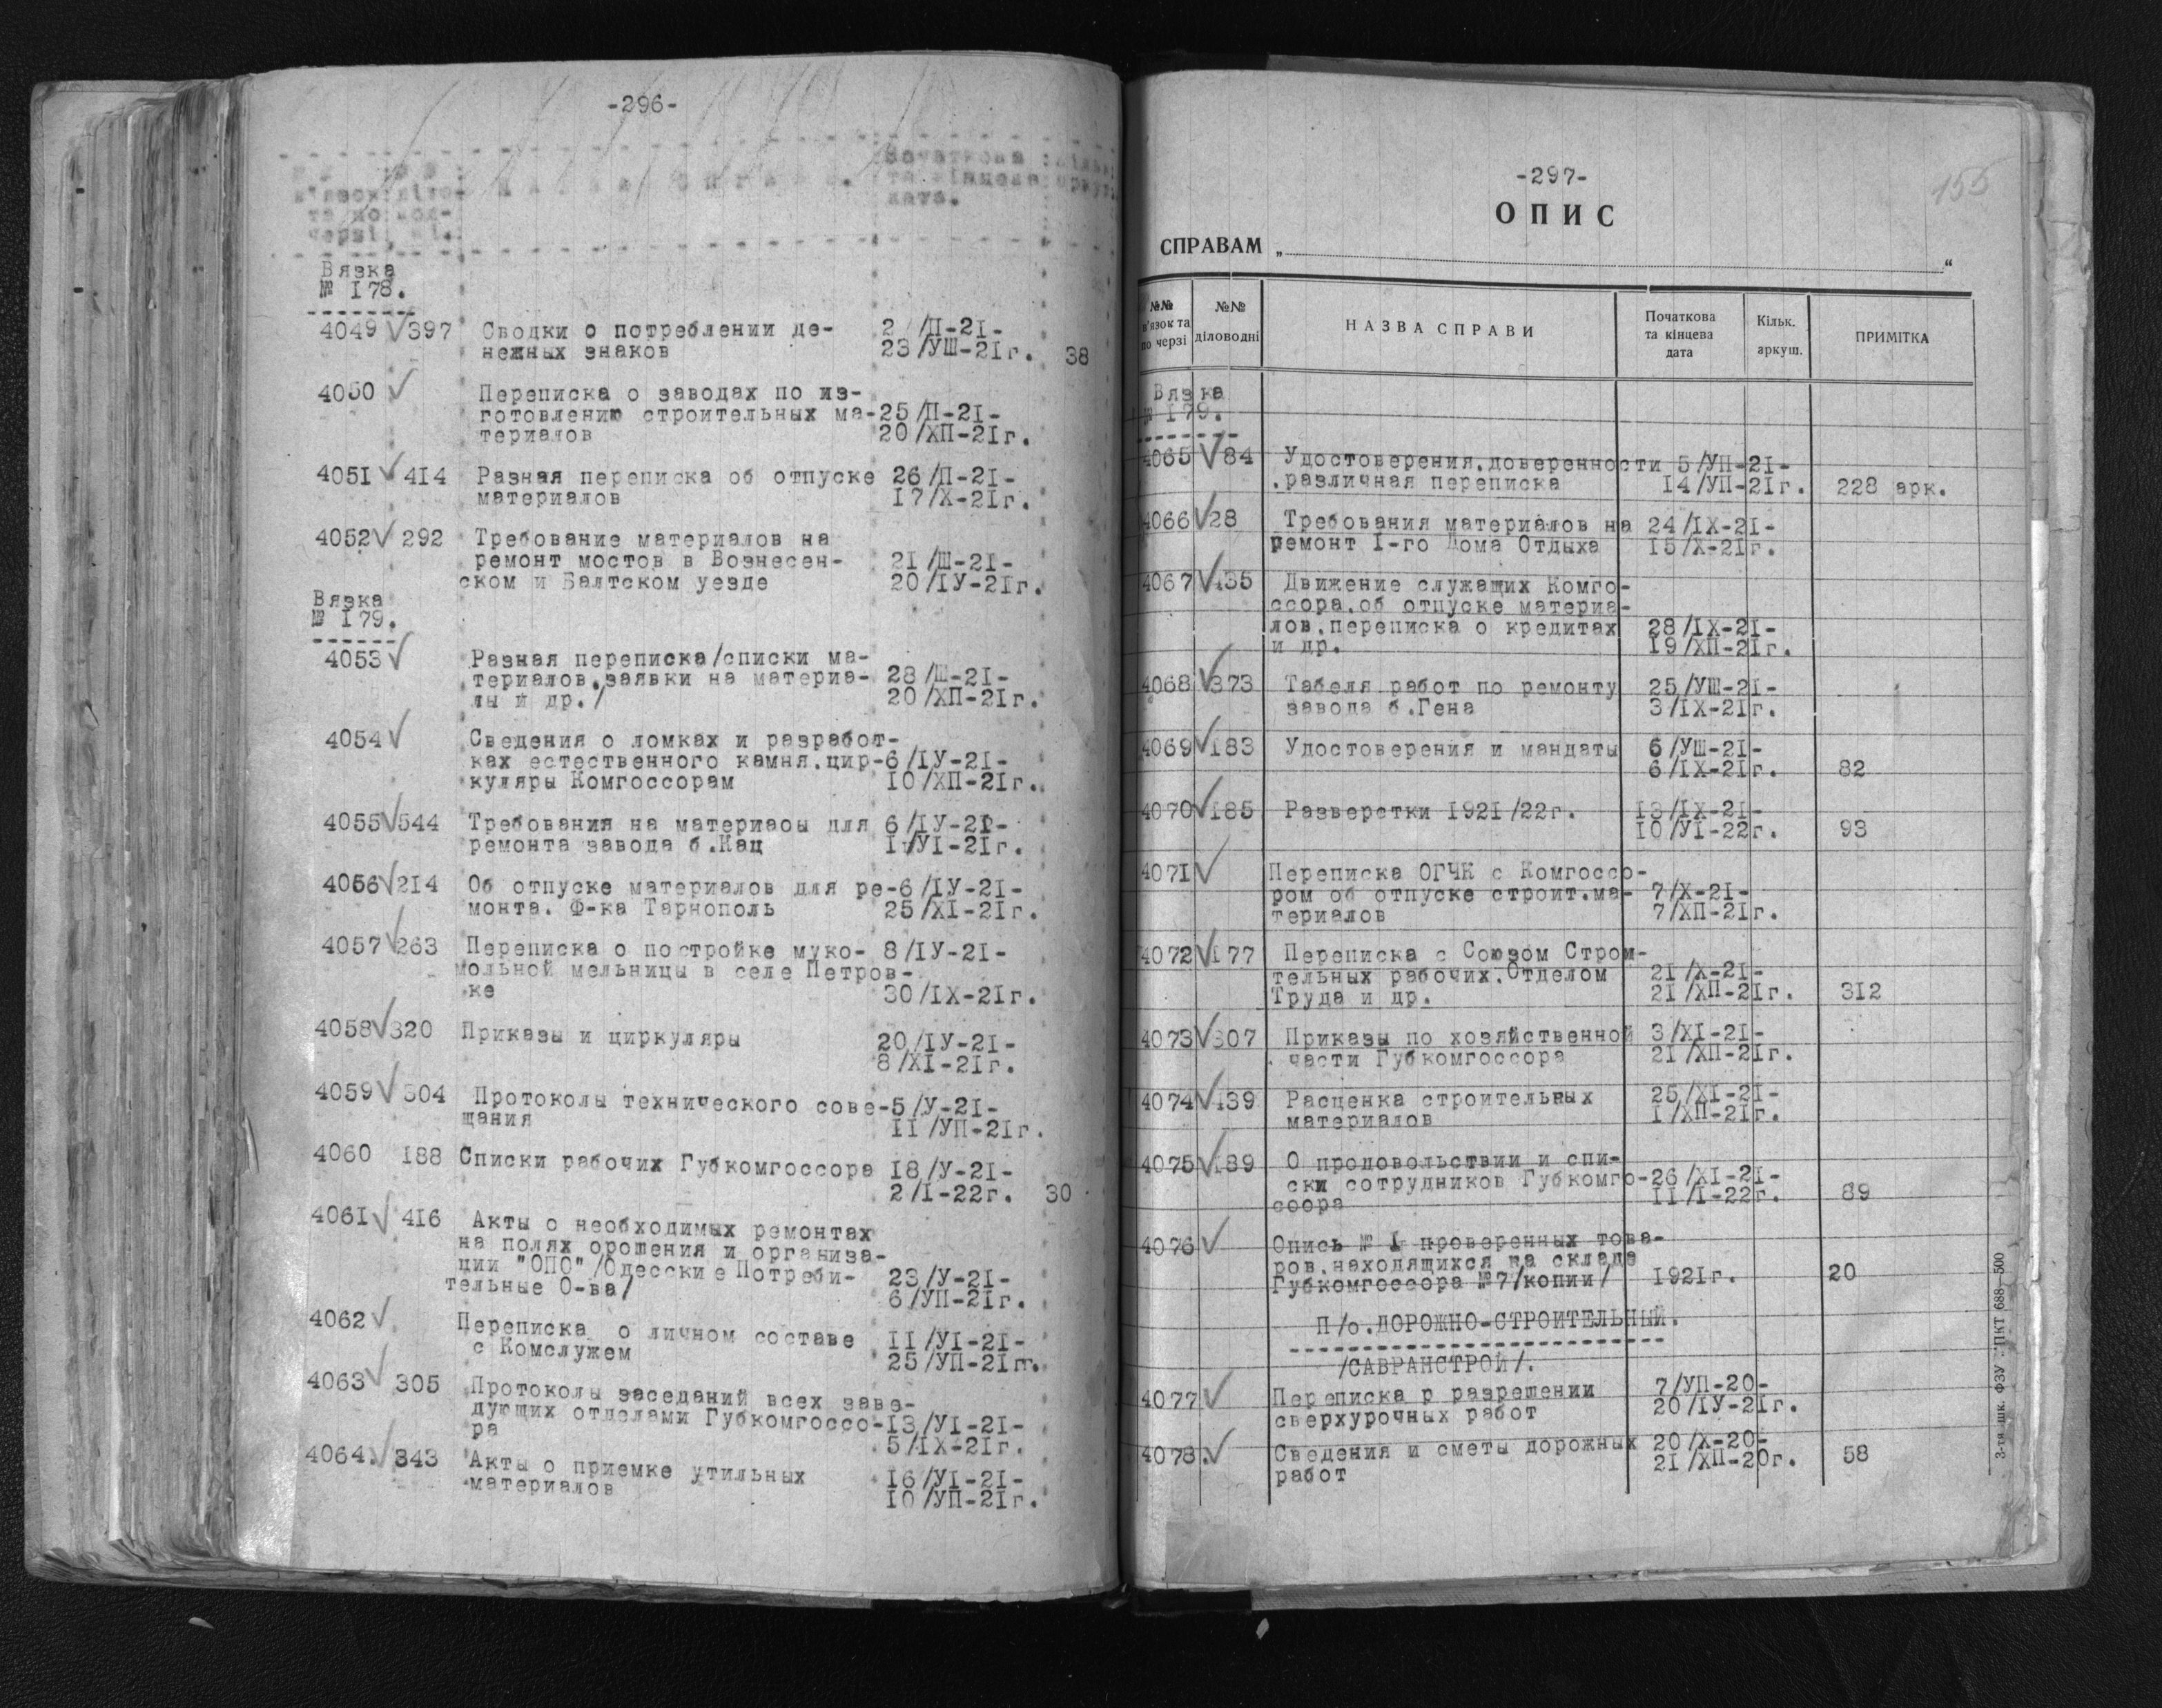 -296-
Початкова
та кінцева
дата.
Вязка
№ 178.
4049 397 Сводки о потреблении де- 2 /П-21-
нежных знаков 23/УШ-21г. 38
4050 Переписка о заводах по из-
готовлению строительных ма- 25/П-21-
териалов 20/ХП-21г.
4051 414 Разная переписка об отпуске 26/П-21-
материалов 17/Х-21г.
4052 292 Требование материалов на
ремонт мостов в Вознесен- 21/Ш-21-
ском и Балтском уезде 20/IУ-21г.
Вязка
№ 179.
4053 Разная переписка/списки ма-
териалов,заявки на материа- 28/Ш-21-
лы и др./ 20/ХП-21г.
4054 Сведения о ломках и разработ-
ках естественного камня,цир- 6/IУ-21-
куляры Комгоссорам 10/ХП-21г.
4055 544 Требования на материаоы для 6/IУ-21-
ремонта завода б.Кац 1/УI-21г.
4056 214 Об отпуске материалов для ре- 6/IУ-21-
монта. Ф-ка Тарнополь 25/XI-21г.
4057 263 Переписка о постройке муко- 8/IУ-21-
мольной мельницы в селе Петров-
ке 30/IX-21г.
4058 320 Приказы и циркуляры 20/IУ-21-
8/XI-21г.
4059 304 Протоколы технического сове- 5/У-21-
щания 11/УП-21г.
4060 188 Списки рабочих Губкомгоссора 18/У-21-
2/I-22г. 30
4061 416 Акты о необходимых ремонтах
на полях орошения и организа-
ции "ОПО"/Одесские Потреби- 23/У-21-
тельные О-ва/ 6/УП-21г.
4062 Переписка о личном составе 11/УI-21-
с Комслужем 25/УП-21гг.
4063 305 Протоколы заседаний всех заве-
дующих отделами Губкомгоссо- 13/УI-21-
ра 5/IX-21г.
4064. 343 Акты о приемке утильных 16/УI-21-
материалов 10/УП-21г.
-297-
155
ОПИС
СПРАВАМ „ “
№№ в'язок та по черзі
№№ діловодні
НАЗВА СПРАВИ
Початкова та кінцева дата
Кільк. аркуш.
ПРИМІТКА
Вязка
№ 179.
4065 84 Удостоверения,доверенности 5/УП-21-
,различная переписка 14/УП-21г. 228 арк.
4066 28 Требования материалов на 24/IX-21-
ремонт I-го Дома Отдыха 15/Х-21г.
4067 435 Движение служащих Комго-
ссора,об отпуске материа-
лов,переписка о кредитах 28/IX-21-
и др. 19/ХП-21г.
4068 373 Табеля работ по ремонту 25/УШ-21-
завода б.Гена 3/IX-21г.
4069 183 Удостоверения и мандаты 6/УШ-21-
6/IX-21г. 82
4070 185 Разверстки 1921/22г. 13/IX-21-
10/УI-22г. 93
4071 Переписка ОГЧК с Комгоссо-
ром об отпуске строит.ма- 7/Х-21-
териалов 7/ХП-21г.
4072 177 Переписка с Союзом Строи-
тельных рабочих,Отделом 21/Х-21-
Труда и др. 21/ХП-21г. 312
4073 307 Приказы по хозяйственной 3/XI-21-
части Губкомгоссора 21/ХП-21г.
4074 439 Расценка строительных 25/XI-21-
материалов 1/ХП-21г.
4075 189 О продовольствии и спи-
ски сотрудников Губкомго- 26/XI-21-
ссора 11/I-22г. 89
4076 Опись № I проверенных това-
ров,находящихся на складе
Губкомгоссора №7/копии/ 1921г. 20
П/о.ДОРОЖНО-СТРОИТЕЛЬНЫЙ.
/САВРАНСТРОЙ/.
4077 Переписка р разрешении 7/УП-20-
сверхурочных работ 20/IУ-21г.
4078. Сведения и сметы дорожных 20/Х-20-
работ 21/ХП-20г. 58
3-тя шк. ФЗУ ПКТ 688—500